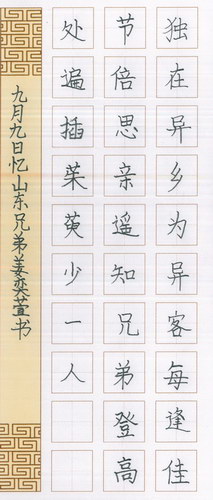 独在异乡为异客每逢佳
节倍思亲遥知兄弟登高
处遍插茱萸少一人
九月九日忆山东兄弟姜奕萱书